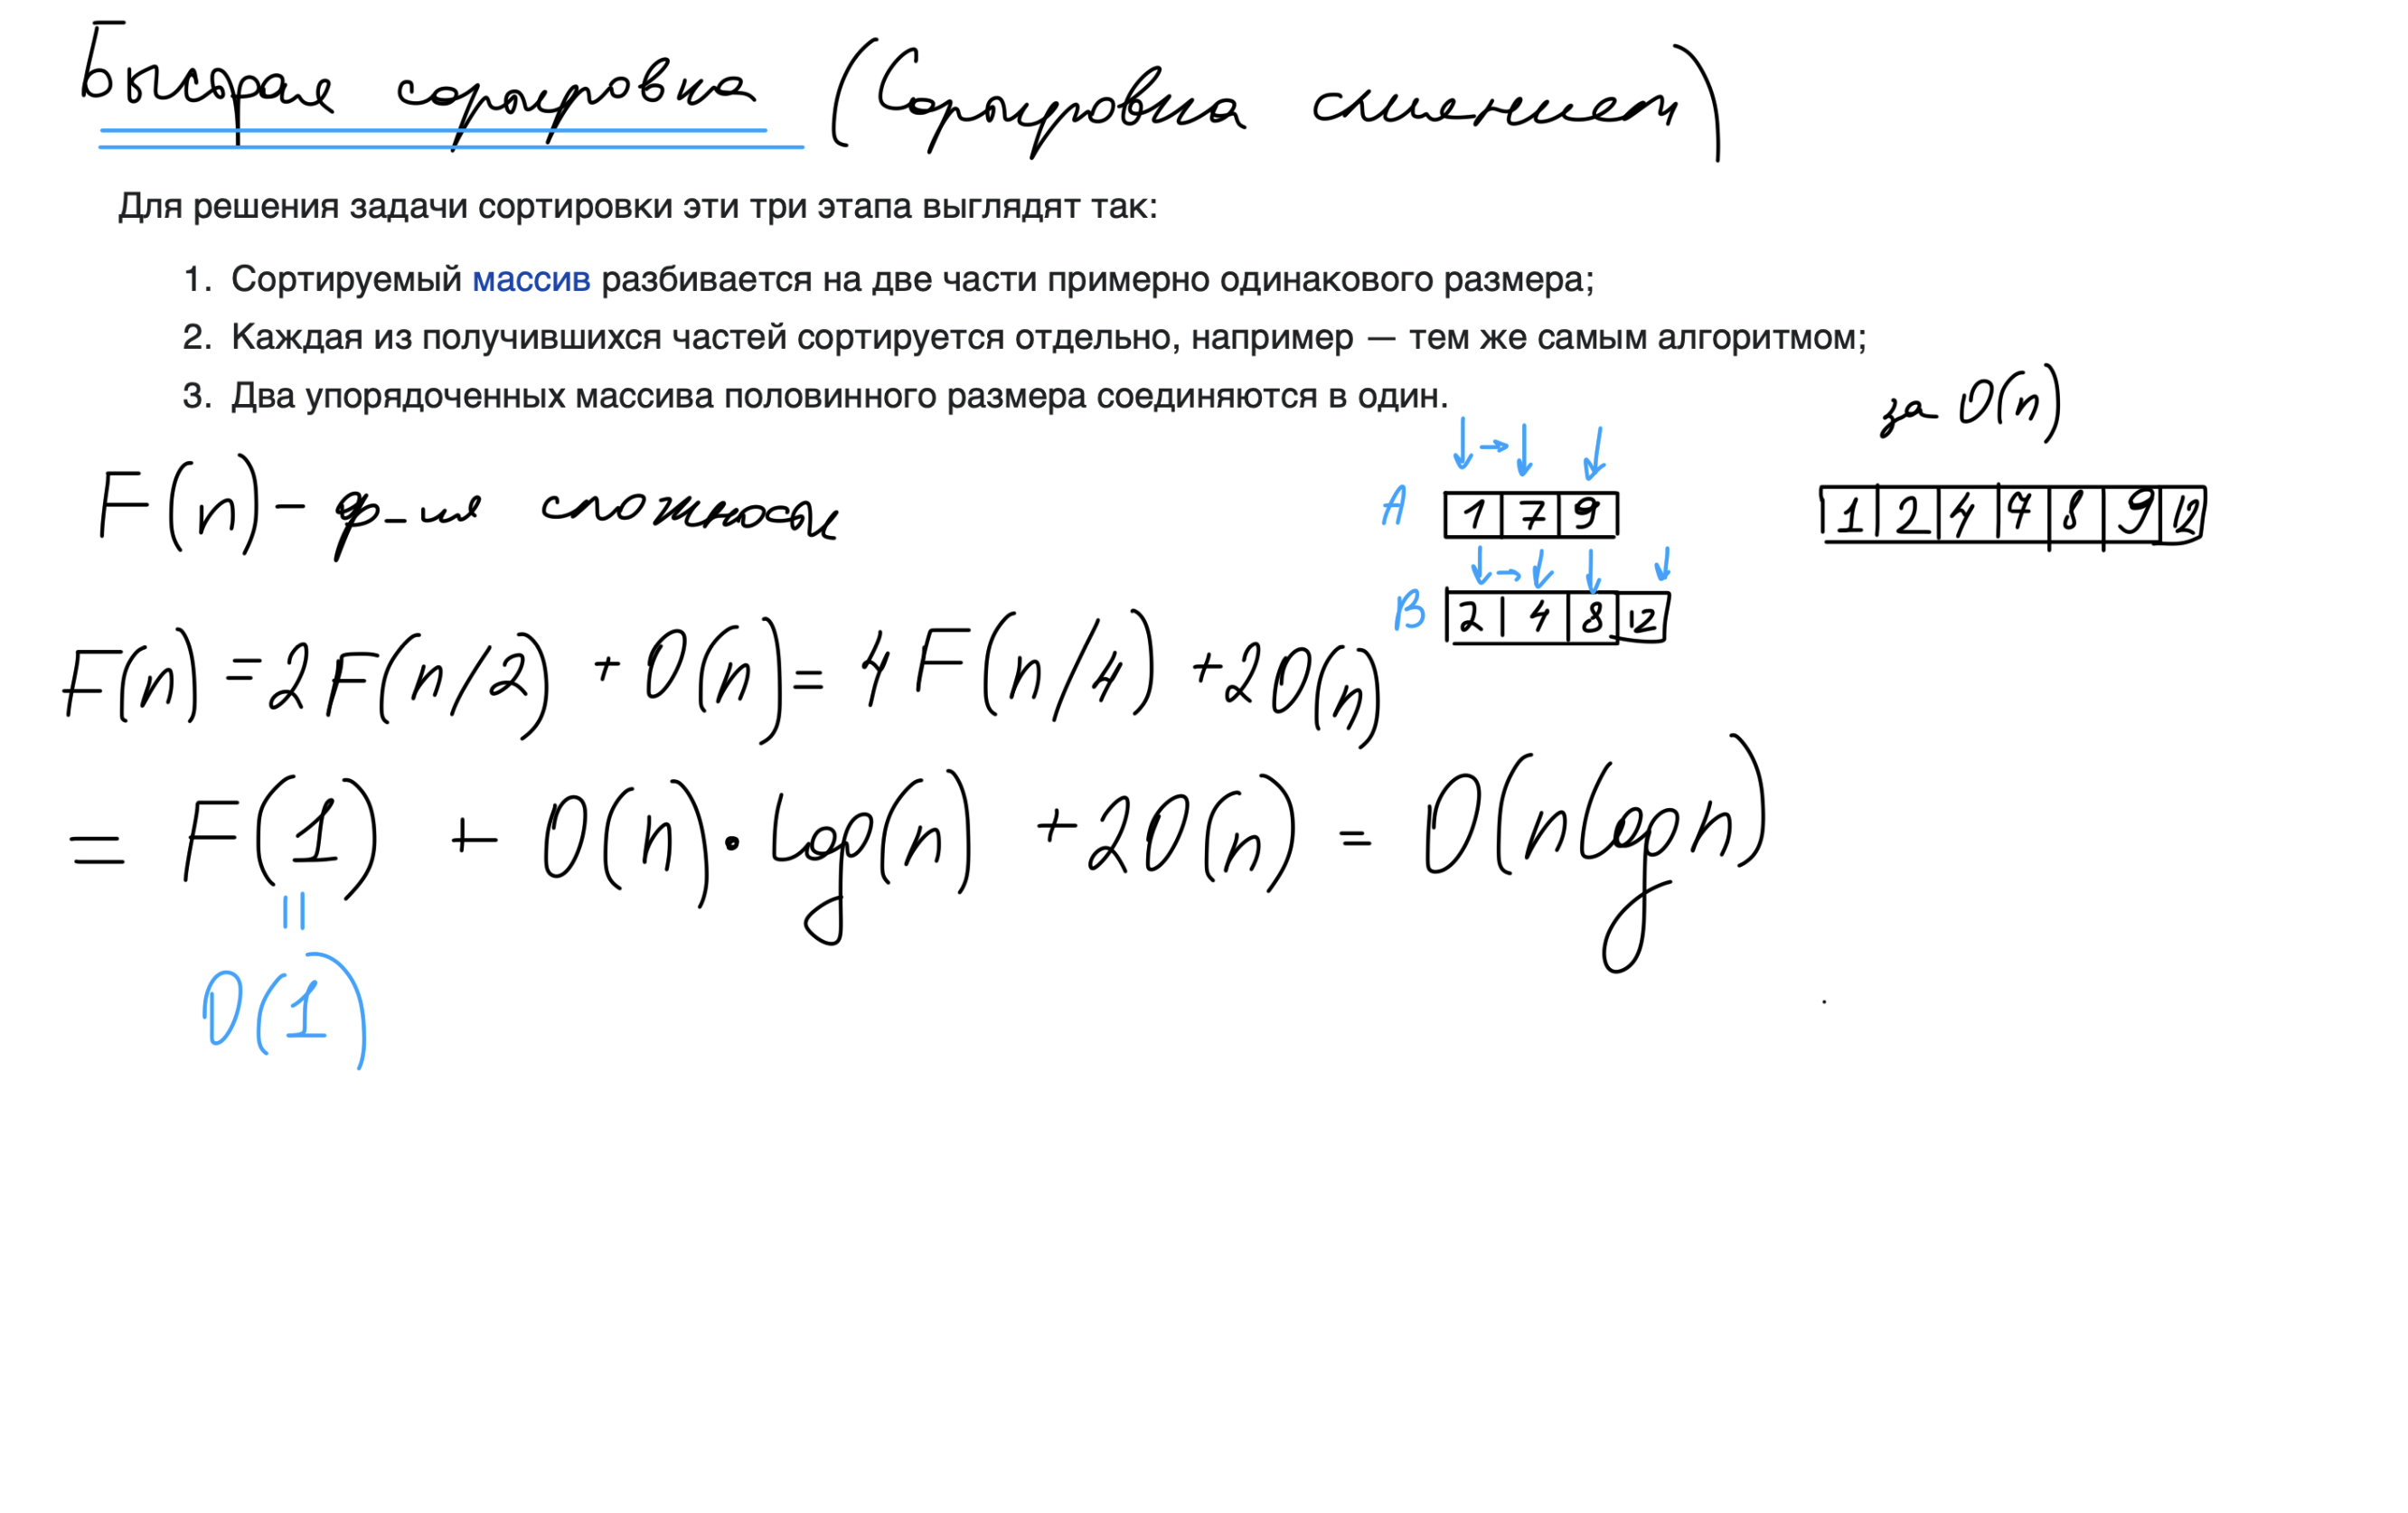 Быстрая сортировка (Сортировка слиянием)
Для решения задачи сортировки эти три этапа выглядят так:
1. Сортируемый массив разбивается на две части примерно одинакового размера;
2. Каждая из получившихся частей сортируется отдельно, например — тем же самым алгоритмом;
3. Два упорядоченных массива половинного размера соединяются в один.
за O(n)
F(n) - ф-ия сложности
A 1 7 9
1 2 4 7 8 9 12
B 2 4 8 12
F(n) = 2F(n/2) + O(n) = 4F(n/4) + 2O(n)
= F(1) + O(n) · log(n) + 2O(n) = O(n log n)
||
O(1)